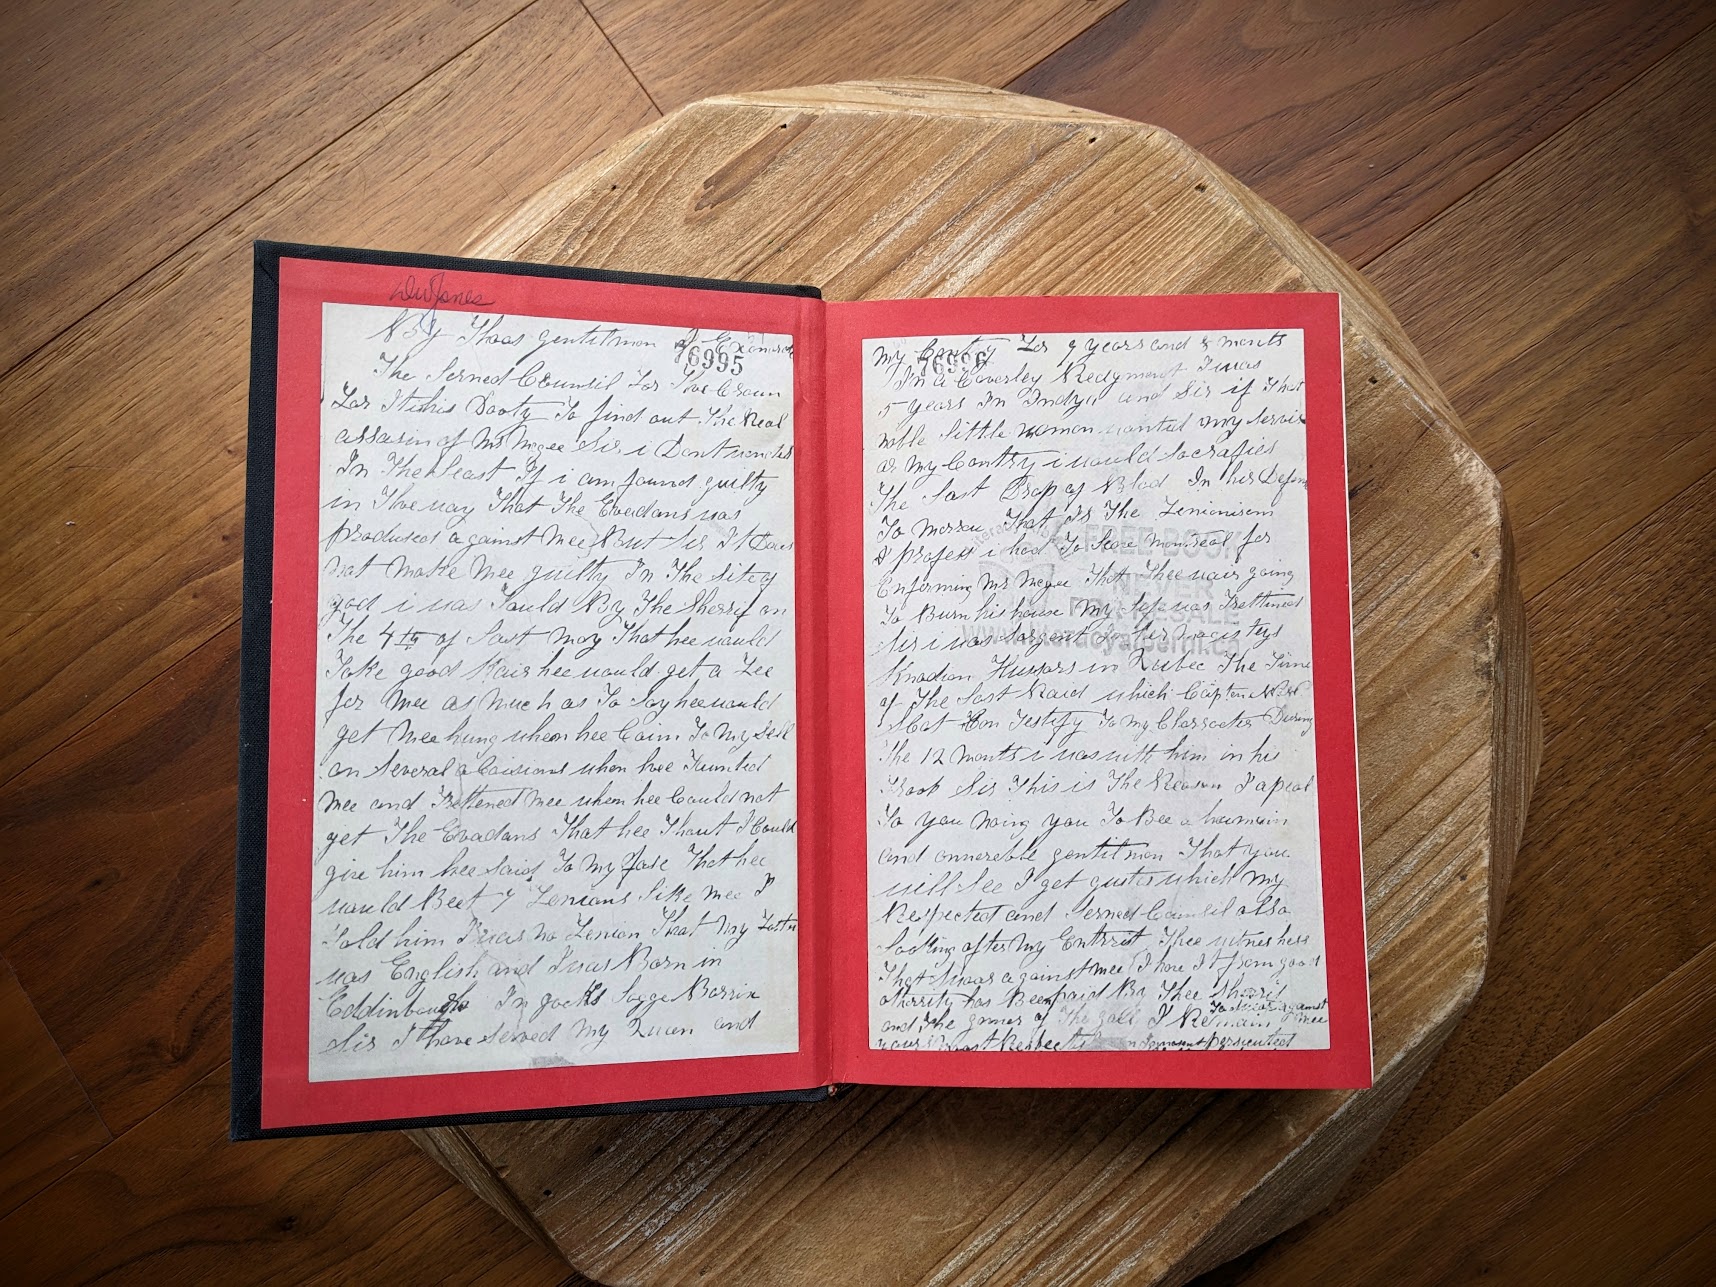 DW Jones
By Thos gentilman
76995
The Lerned Council For The Croun
For It is his Dooty To find out The Real
assasin of Mr Megee Sir i Dont
In The Least If i am found guilty
in The way That The Evadans was
prodused against Mee But Sir It Does
not make Mee guilty In The site of
god i was Tould By The Sherrif on
The 4th of Last May That hee would
Take good Kair hee would get a
for Mee as Much as To Say hee would
get Mee hung when hee Caim To My Sell
on Several when hee Taunted
Mee and Trettened Mee when hee Could not
get The Evadans That hee Thout I Could
give him hee said To My fase That hee
would Beet 7 Fenians Like Mee I
Told him I was no Fenian That My
was English and I was Born in
In
Sir I have Served My Quen and
My Contry For 9 years and 8 Monts
76996
In a Coverley Redgment I was
5 years In Indya and Sir if That
noble Little woman wanted my Servis
or My Contry i would Socrafies
The Last Drop of Blod In his
To Morrow That Is The Fenionism
I profess i had To Leve Montreal for
Enforming Mr Megee That Thee wair going
To Burn his house My Life was Trettened
Sir i was Sargent in Her Magisteys
Knadian Hussars in Qubec The Time
of The Last Raid which
Can Testify To My Charracter During
The 12 Monts i was with him in his
Troop Sir This is The Reason I apeal
To you Noing you To Bee a humain
and onnerable gentilman That you
will See I get gustes which My
Respected and Lerned Council also
Looking after My Entrest Thee witneshess
That Swore against Mee I have It from good
has Been paid By Thee Sherrif
and The of The gall To Swear against
Mee
I Remain
your Most persecuted
FREE BOOK
NEVER
FOR RESALE